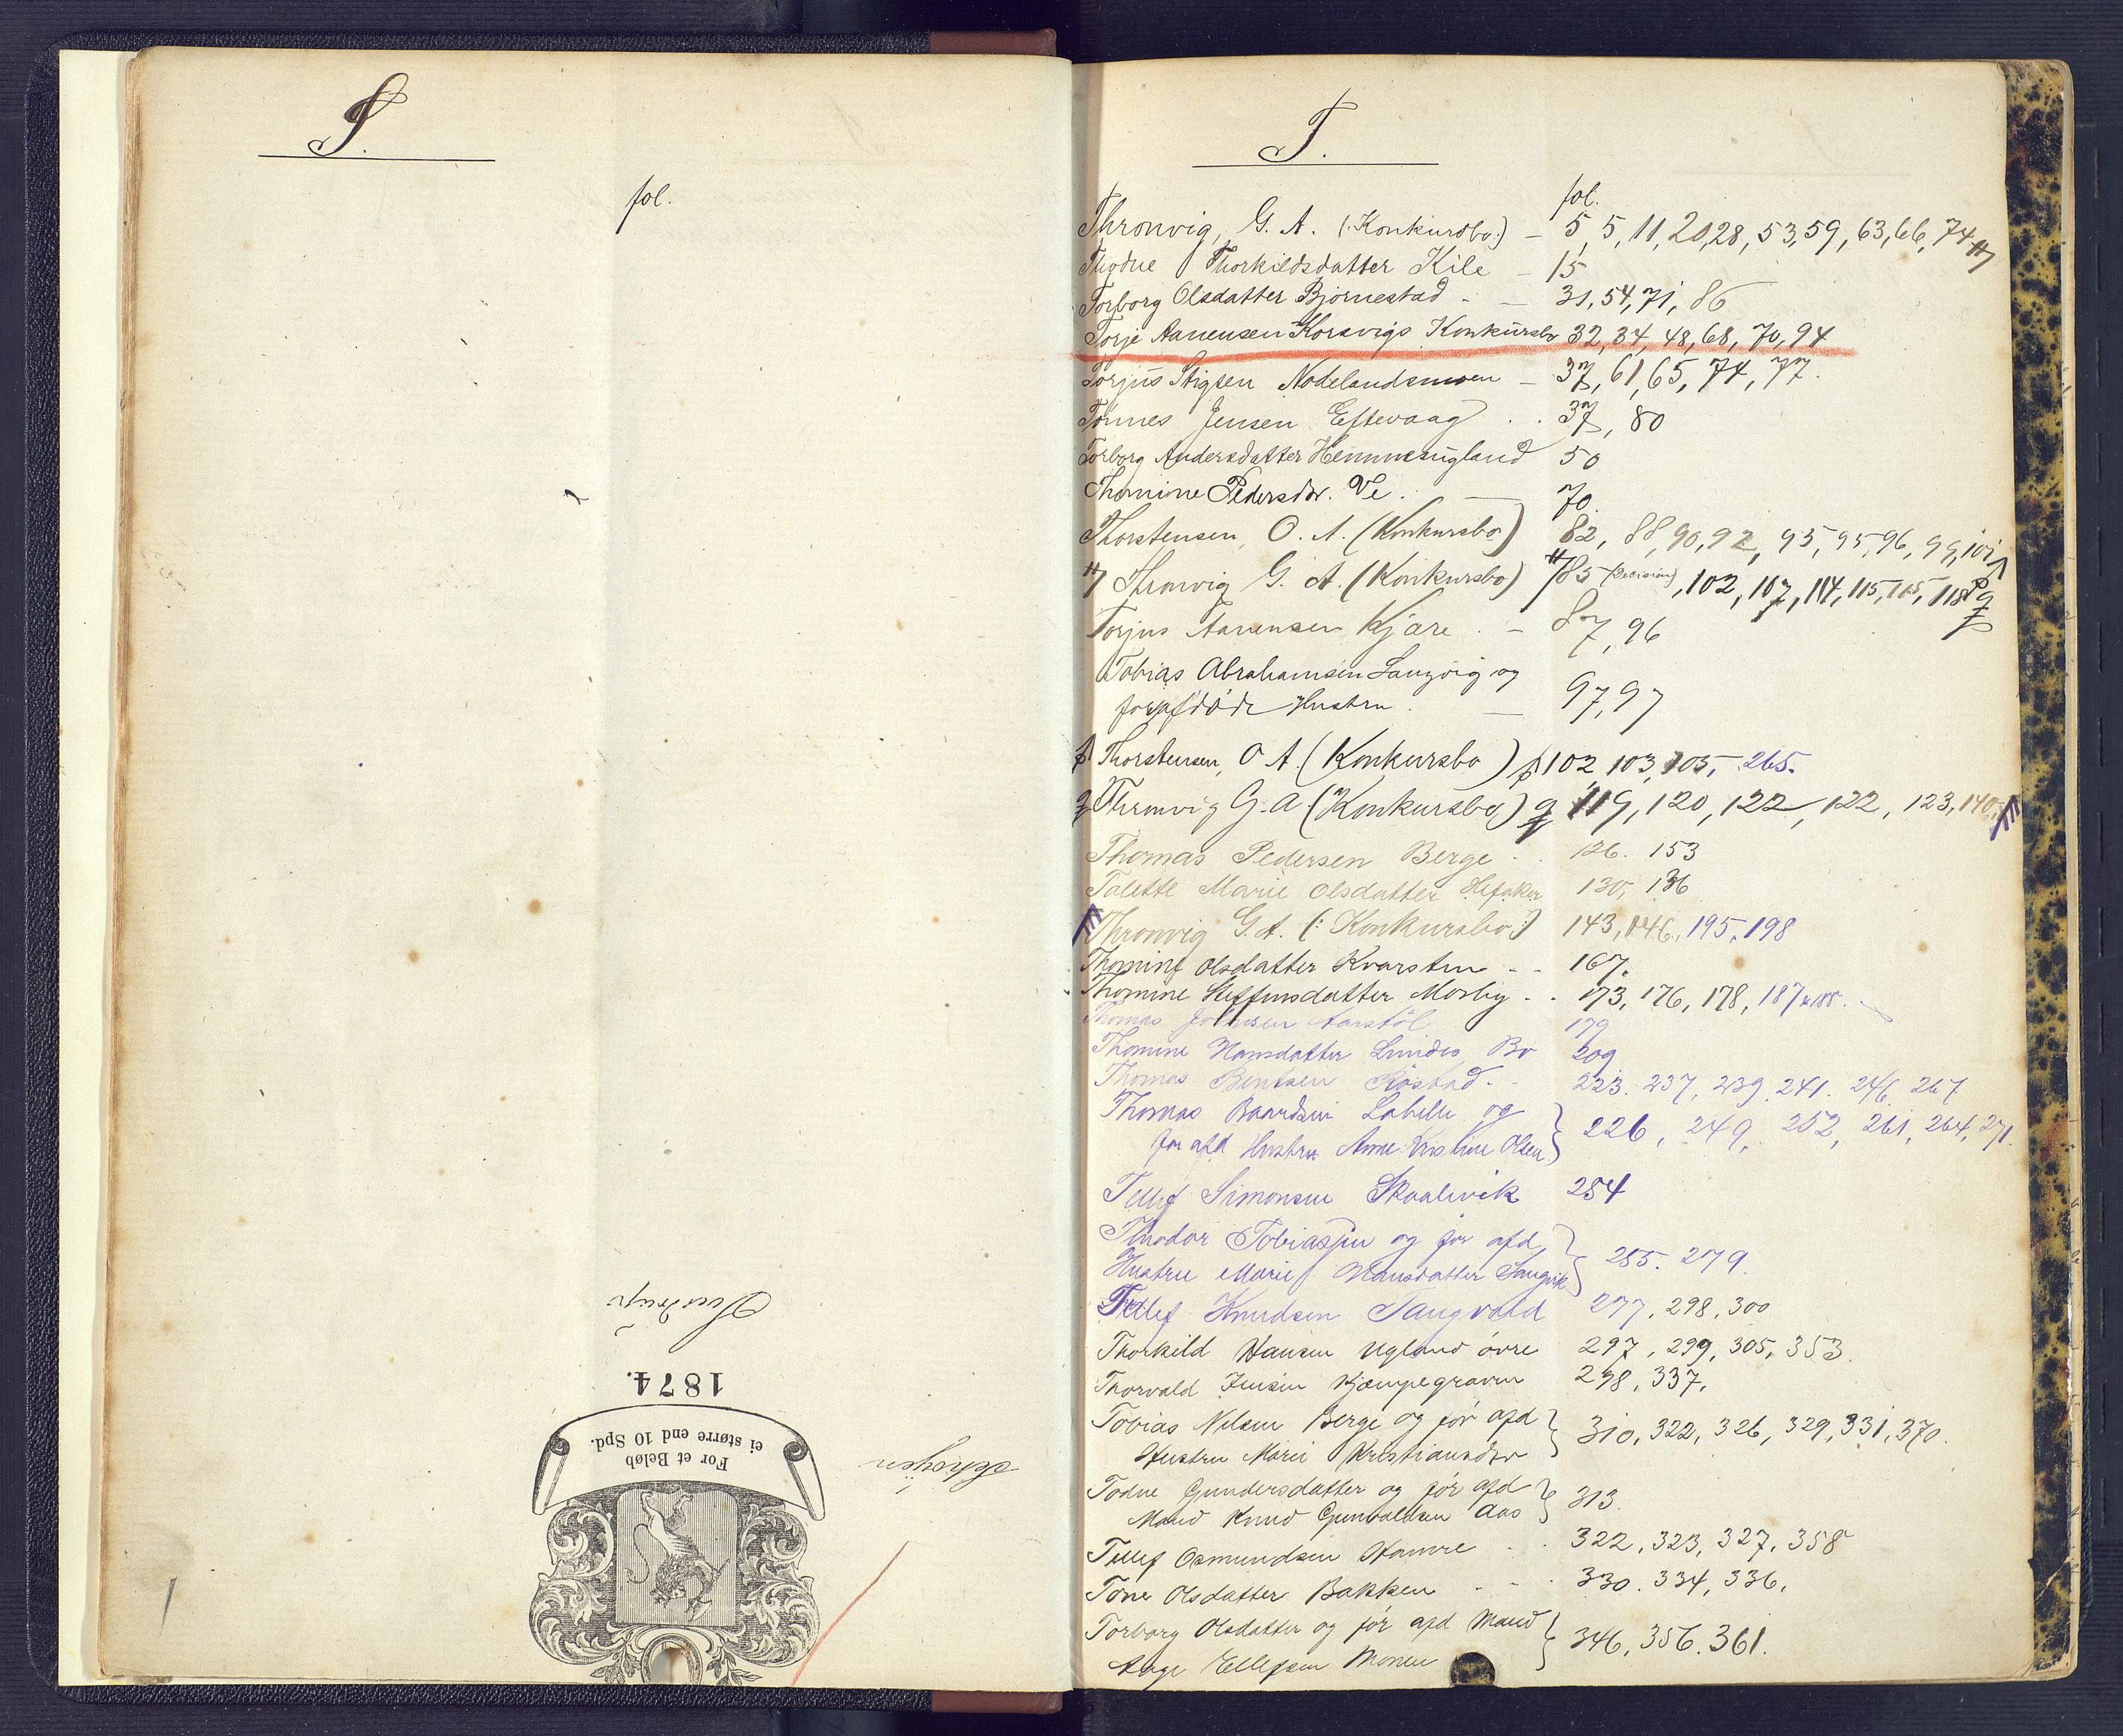 S.
fol.
1874.
For et Beløb
ei større end 10 Spd.
T.
fol.
Thronvig, G. A. (:Konkursbo:) – 5, 5, 11, 20, 28, 53, 59, 63, 66, 74
Thodne Thorkildsdatter Kile – 15
Torborg Olsdatter Bjornestad - – 31, 54, 71, 86
Torje Aanensen Korsvigs Konkursbo 32, 34, 48, 68, 70, 94
Torjus Stigsen Nodelandsmoen – 37, 61, 65, 74, 77.
Tönnes Jensen Eftevaag . . 37, 80
Torborg Andersdatter Hemmesugland 50
Thomine Pedersdr. Ve. – 70.
Thorstensen, O. A. (Konkursbo) 82, 88, 90, 92, 95, 95, 96, 99, 101
Thronvig G. A. (Konkursbo) 85 (Decision), 102, 107, 114, 115, 115, 118
Torjus Aanensen Kjære . – 87, 96
Tobias Abrahamsen Langvig og
forafdöde Hustru . – 97, 97
Thorstensen, O A. (Konkursbo) 102, 103, 105, 265.
Thronvig G. A. (Konkursbo) 119, 120, 122, 122, 123, 140,
Thomas Pedersen Berge - . 126. 153
Talette Marie Olsdatter 130, 136
Thronvig G. A. (: Konkursbo:) 143, 146, 195, 198
Thomine Olsdatter Kvarsten - - 167.
Thomine Steffensdatter Mosby - . 173, 176, 178, 187 & 188.
Thomas Johnsen Aarstöl 179
Thomine Hansdatter Lundes Bo 209
Thomas Bentsen Röstad. - 223. 237, 239. 241. 246. 267
Thomas Baardsen Labelle og
for afd Hustru Anne Kristine Olsen } 226, 249, 252, 261, 264, 271.
Tellef Simonsen Skaalevik 254
Thodor Tobiassen og för afd,
Hustru Marie Hansdatter Langvik } 255. 279.
Tellef Knudsen Tangvald 277, 298, 300
Thorkild Hansen Ugland övre 297, 299, 305, 353.
Thorvald Jensen Kjæmpegraven 298, 337,
Tobias Nilsen Berge og för afd
Hustru Marie Kristiansdtr } 310, 322, 326, 329, 331, 370.
Todne Gundersdatter og för afd
Mand Knud Gunvaldsen Aas } 313.
Tellef Osmundsen Hamre - . 322, 323, 327, 358
Tone Olsdatter Bakken - - . 330. 334, 336,
Torborg Olsdatter og för afd Mand
Aage Ellefsen Monen } 346, 356. 361.